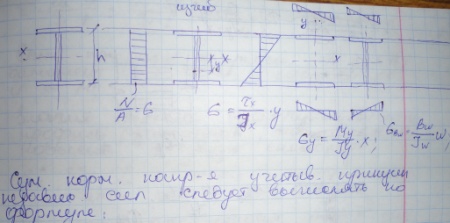 изгиб
x h y x x y x
N/A = б б = Mx/Jx · y
бy = My/Jy · x; бw = Bw/Jw w,
Сум. норм. напр-я учетыв. принцип
сил следует вычислять по
формуле: